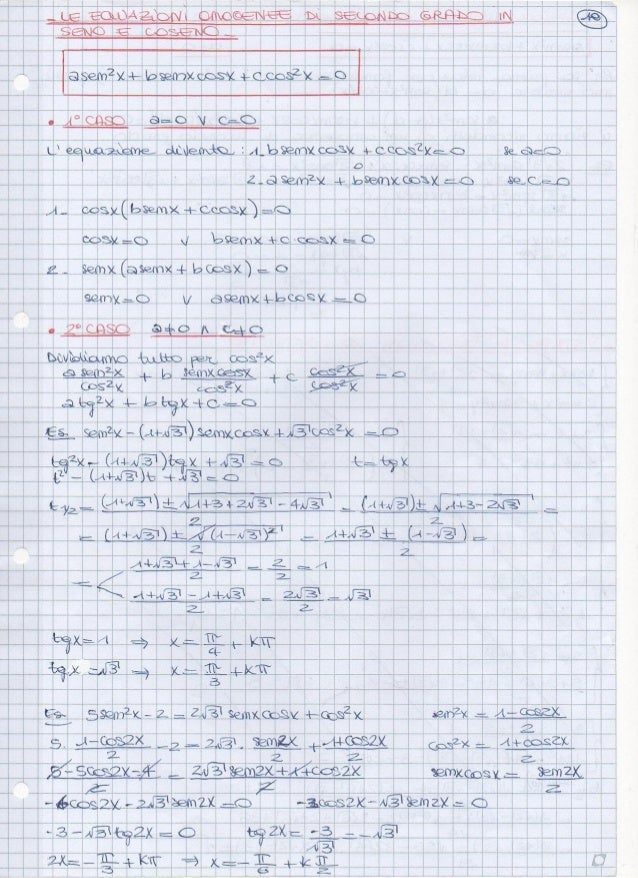 - LE EQUAZIONI OMOGENEE DI SECONDO GRADO IN
SENO E COSENO -
10
a sen²x + b senx cosx + c cos²x = 0
• 1° CASO a=0 ∨ c=0
L'equazione diventa: 1_ b senx cosx + c cos²x = 0 se a=0
2_ a sen²x + b senx cosx = 0 se c=0
1_ cosx (b senx + c cosx) = 0
cosx = 0 ∨ b senx + c · cosx = 0
2_ senx (a senx + b cosx) = 0
senx = 0 ∨ a senx + b cosx = 0
• 2° CASO a≠0 ∧ c≠0
Dividiamo tutto per cos²x
a sen²x/cos²x + b senx cosx/cos²x + c cos²x/cos²x = 0
a tg²x + b tgx + c = 0
Es. sen²x - (1+√3) senx cosx + √3 cos²x = 0
tg²x - (1+√3) tgx + √3 = 0 t = tgx
t² - (1+√3)t + √3 = 0
t1/2 = (1+√3) ± √1+3+2√3-4√3 / 2 = (1+√3) ± √1+3-2√3 / 2 =
= (1+√3) ± √(1-√3)² / 2 = 1+√3 ± (1-√3) / 2 =
= < 1+√3+1-√3 / 2 = 2/2 = 1
1+√3-1+√3 / 2 = 2√3/2 = √3
tgx = 1 ⇒ x = π/4 + kπ
tgx = √3 ⇒ x = π/3 + kπ
Es. 5sen²x - 2 = 2√3 senx cosx + cos²x sen²x = 1-cos2x / 2
5 · 1-cos2x / 2 - 2 = 2√3 · sen2x / 2 + 1+cos2x / 2 cos²x = 1+cos2x / 2
5-5cos2x-4 / 2 = 2√3 sen2x+1+cos2x / 2 senx cosx = sen2x / 2
-6cos2x - 2√3 sen2x = 0 -3cos2x - √3 sen2x = 0
-3 - √3 tg2x = 0 tg2x = -3/√3 = -√3
2x = -π/3 + kπ ⇒ x = -π/6 + k π/2